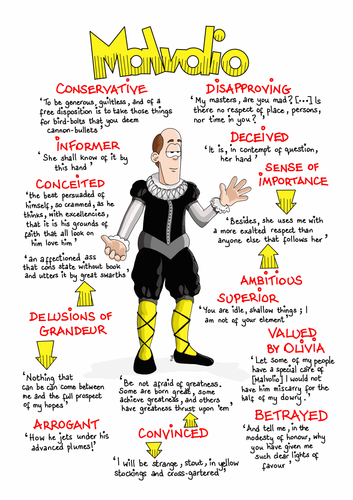 Malvolio
CONSERVATIVE
'To be generous, guiltless, and of a
free disposition is to take those things
for bird-bolts that you deem
cannon-bullets'
INFORMER
'She shall know of it by
this hand'
CONCEITED
'the best persuaded of
himself, so crammed, as he
thinks, with excellencies,
that it is his grounds of
faith that all look on
him love him'
'an affectioned ass
that cons state without book
and utters it by great swarths'
DELUSIONS OF
GRANDEUR
'Nothing that
can be can come between
me and the full prospect
of my hopes'
ARROGANT
'How he jets under his
advanced plumes!'
DISAPPROVING
'My masters, are you mad? [...] Is
there no respect of place, persons,
nor time in you?'
DECEIVED
'It is, in contempt of question,
her hand'
SENSE OF
IMPORTANCE
'Besides, she uses me with
a more exalted respect than
anyone else that follows her'
AMBITIOUS
SUPERIOR
'You are idle, shallow things; I
am not of your element'
VALUED
BY OLIVIA
'Let some of my people
have a special care of
[Malvolio] I would not
have him miscarry for the
half of my dowry.'
BETRAYED
'And tell me, in the
modesty of honour, why
you have given me
such clear lights of
favour'
'Be not afraid of greatness.
Some are born great, some
achieve greatness, and others
have greatness thrust upon 'em'
CONVINCED
'I will be strange, stout, in yellow
stockings and cross-gartered'